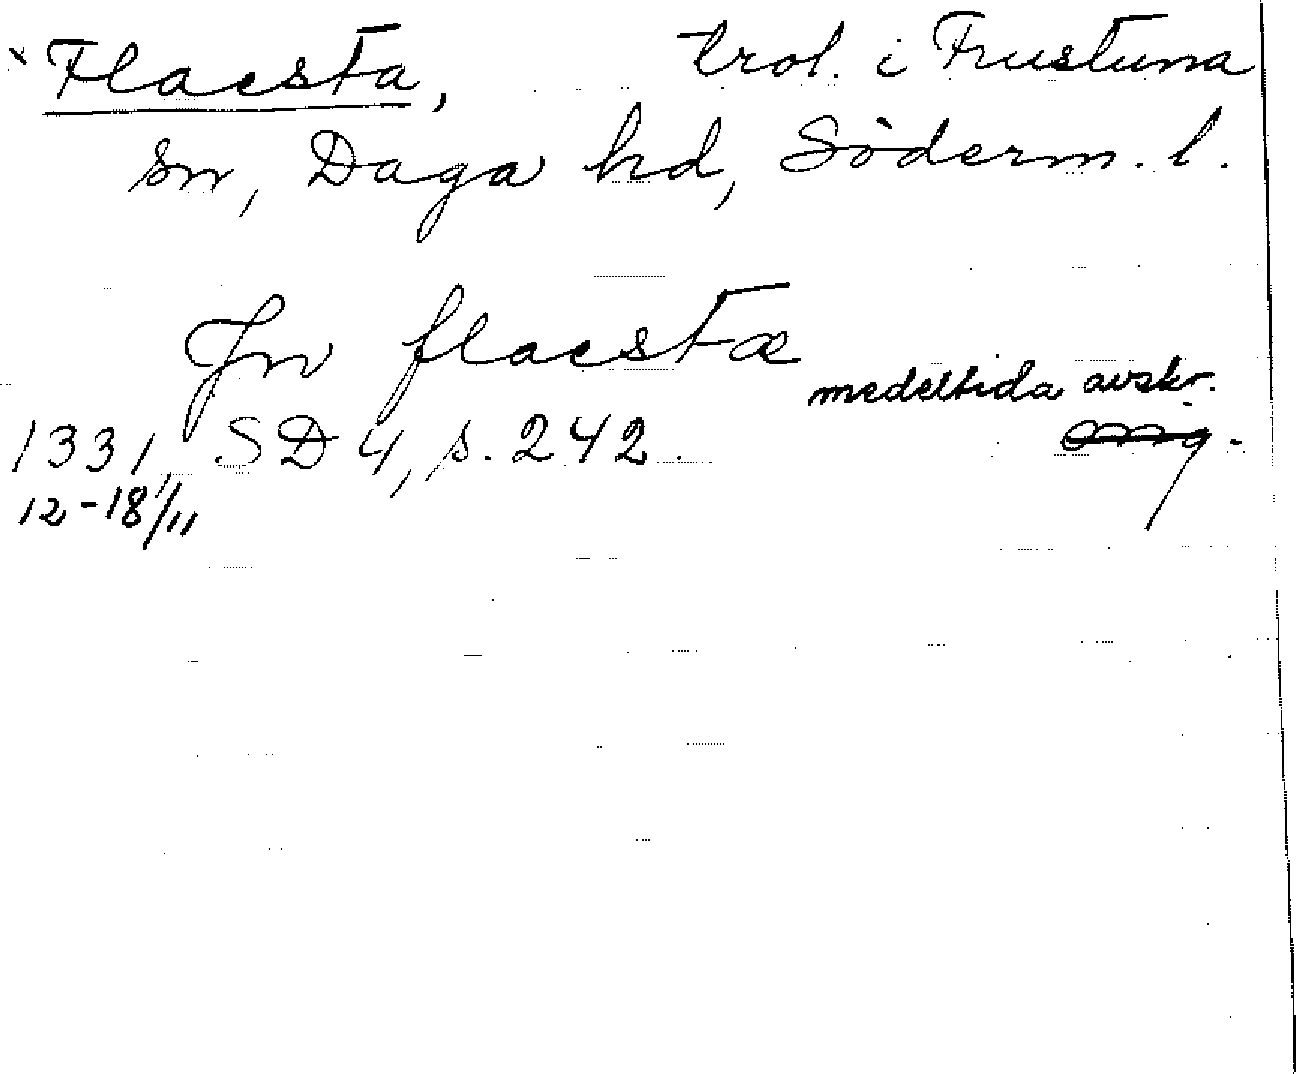 Flaesta, trol. i Frustuna
sn, Daga hd, Söderm. l.
Jn flaestæ
medeltida avskr.
1331, SD 4, s. 242.
12-18/11